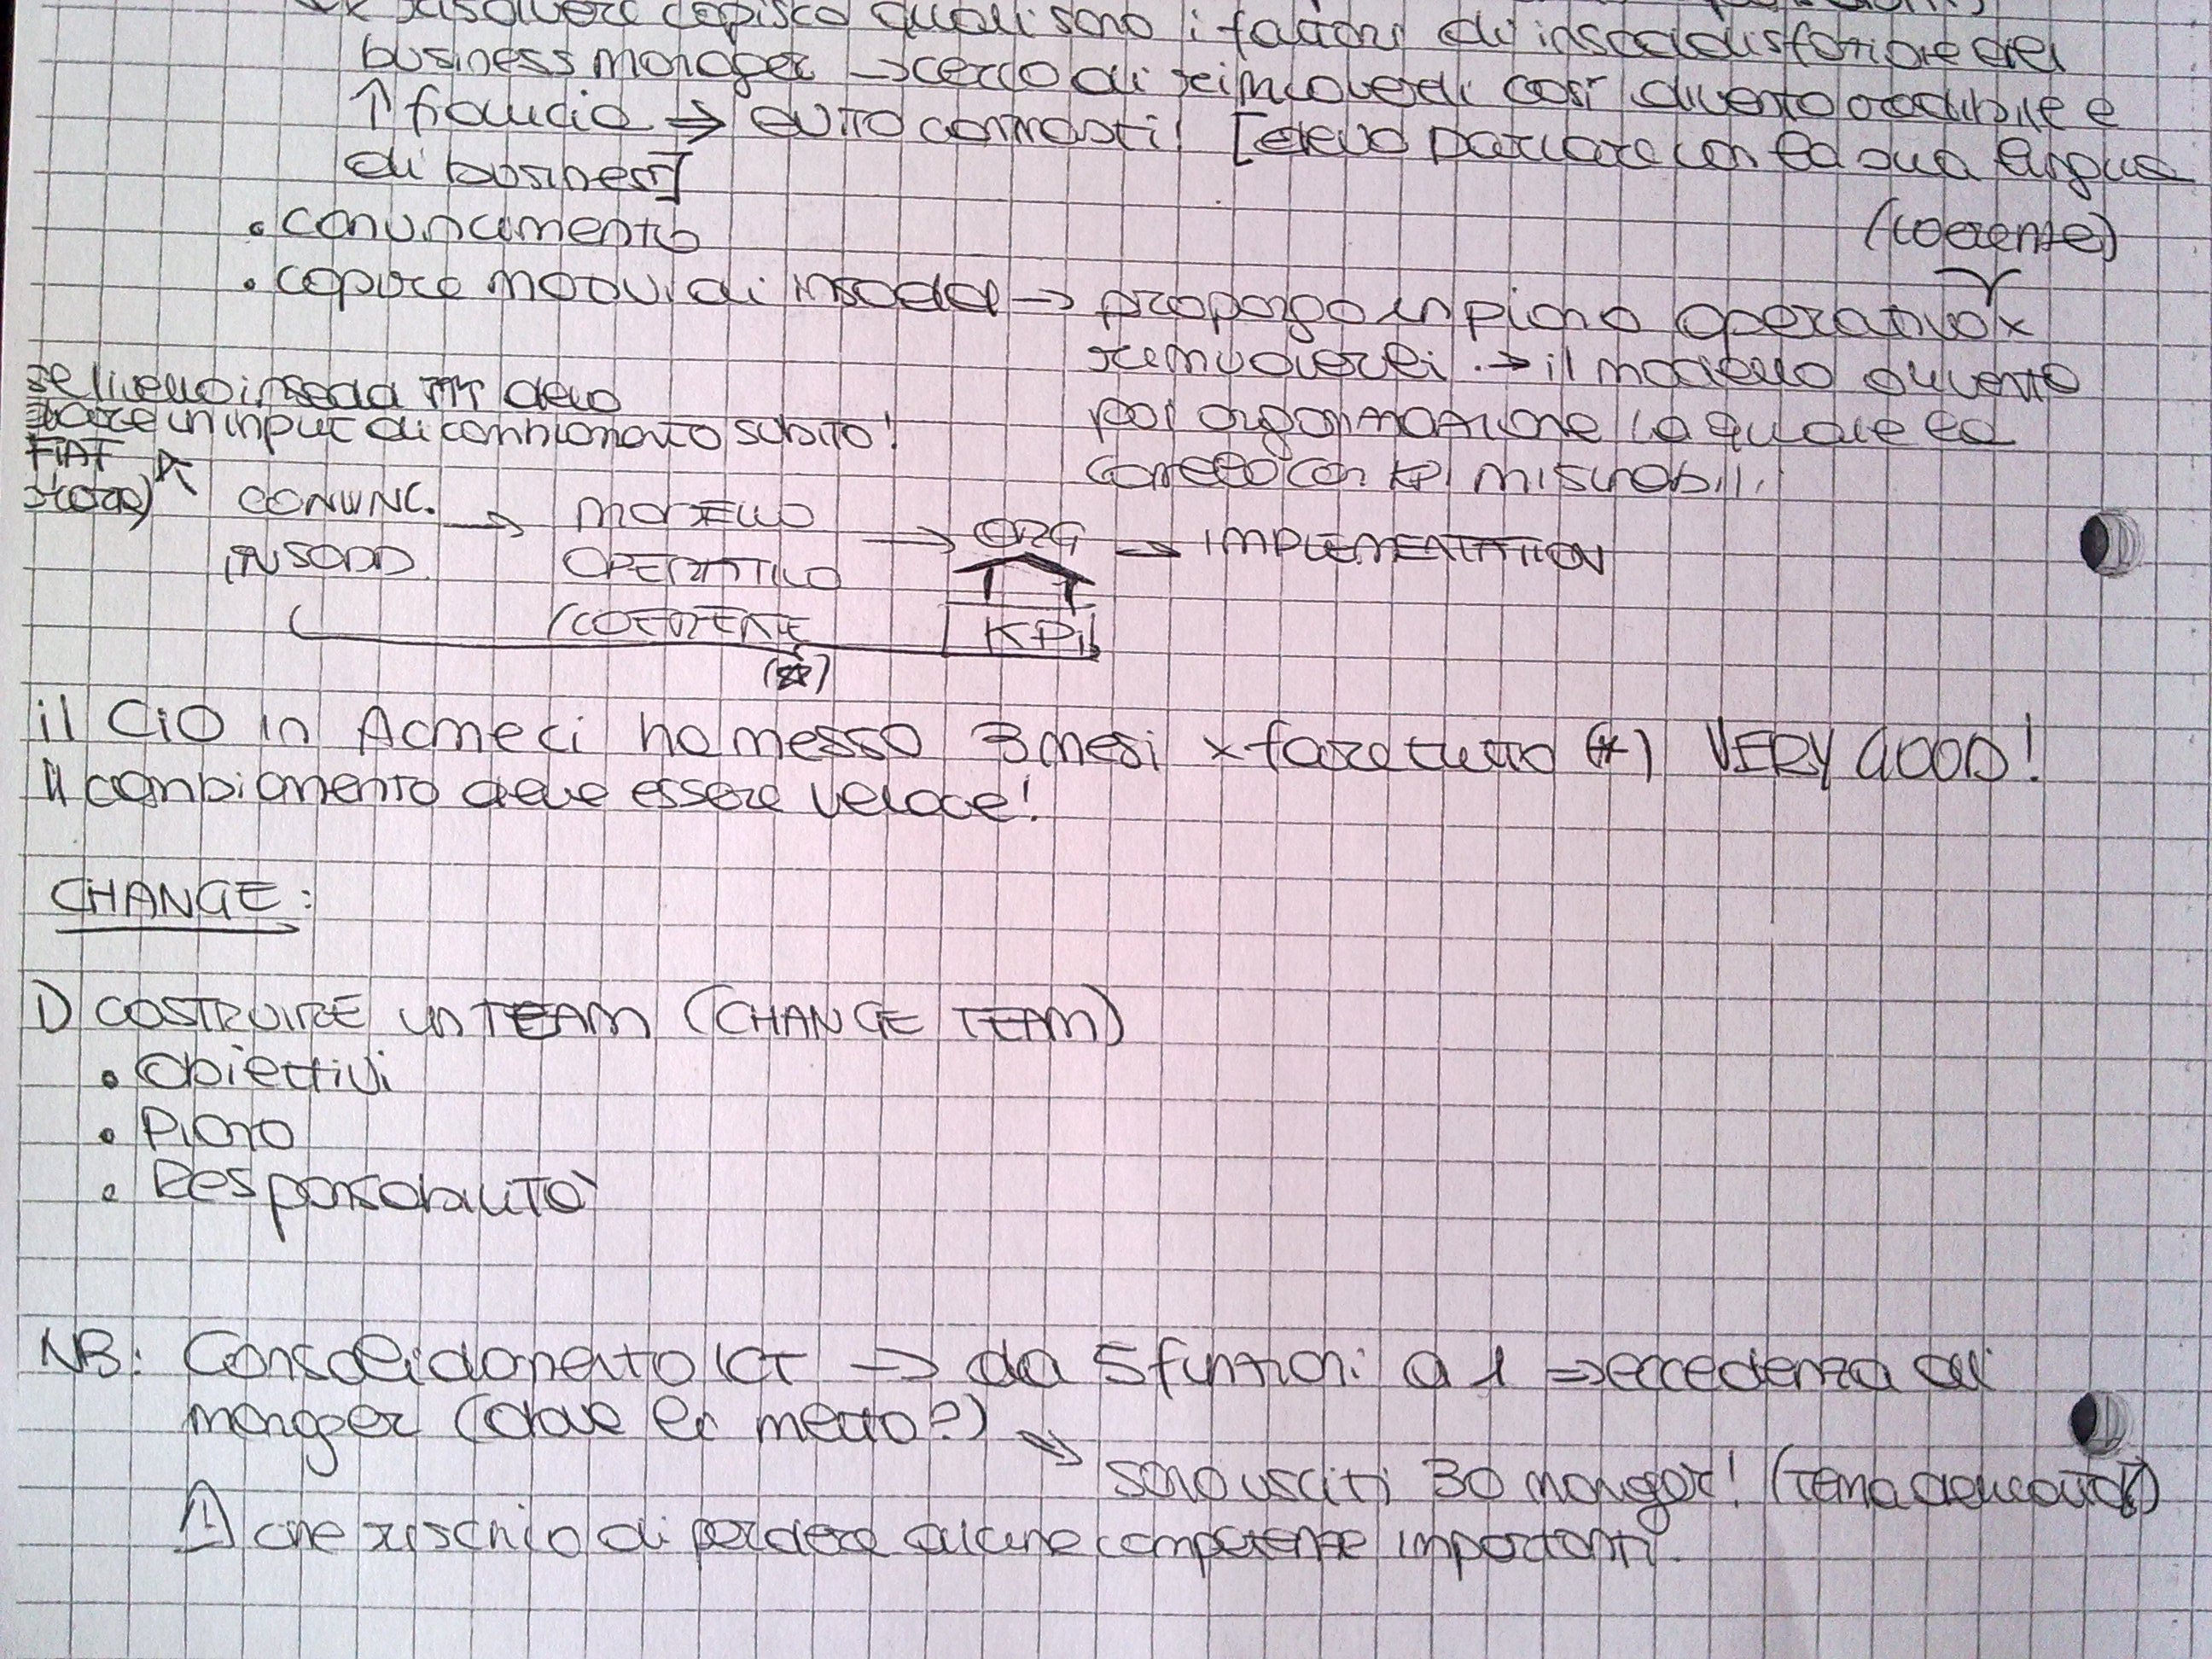 x risolvere capisco quali sono i fattori di insoddisfazione dei
business manager → cerco di rimuoverli così divento credibile e
↑ fiducia ⇒ evito contrasti! [devo parlare con la sua lingua
di business]
• convincimento
(coerente)
• capire motivi di insodd → propongo un piano operativo x
rimuoverli. → il modello diventa
poi organizzazione la quale la
correlo con KPI misurabili.
se livello insodd ↑↑↑ devo
dare un input di cambiamento subito!
FIAT
CONVINC. → MODELLO → ORG → IMPLEMENTATION
INSODD. OPERATIVO
(COERENTE KPi
(*)
il CiO in Acmeci ha messo 3 mesi x fare tutto (*) VERY GOOD!
Il cambiamento deve essere veloce!
CHANGE:
1) COSTRUIRE un TEAM (CHANGE TEAM)
• Obiettivi
• Piano
• Responsabilità
NB: Consolidamento ICT ⇒ da 5 funzioni a 1 ⇒ eccedenza di
manager (dove li metto?) ⇒
sono usciti 30 manager! (tema delicato!)
⚠ che rischio di perdere alcune competenze importanti.